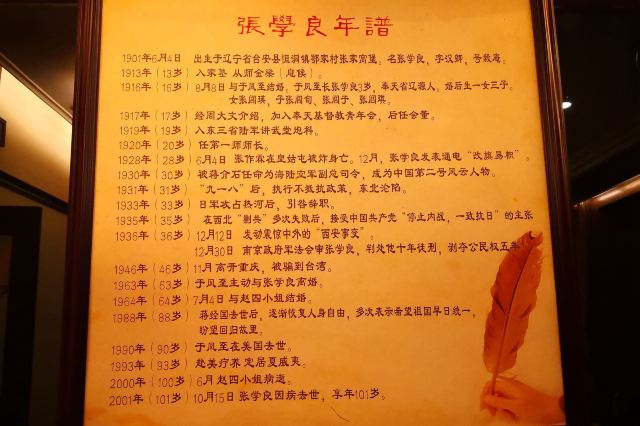 張學良年譜
1901年6月4日 出生于辽宁省台安县恒洞镇鄂家村张家窝堡。名张学良，字汉卿，号毅庵。
1913年（13岁） 入家塾 从师金梁（息侯）。
1916年（16岁） 8月8日与于凤至结婚。于凤至长张学良3岁，奉天省辽源人。婚后生一女三子。
女张闾瑛，子张闾珣、张闾玗、张闾琪。
1917年（17岁） 经周大文介绍，加入奉天基督教青年会，后任会董。
1919年（19岁） 入东三省陆军讲武堂炮科。
1920年（20岁） 任第一师师长。
1928年（28岁） 6月4日 张作霖在皇姑屯被炸身亡。12月，张学良发表通电“改旗易帜”。
1930年（30岁） 被蒋介石任命为海陆空军副总司令，成为中国第二号风云人物。
1931年（31岁） “九一八”后，执行不抵抗政策，东北沦陷。
1933年（33岁） 日军攻占热河后，引咎辞职。
1935年（35岁） 在西北“剿共”多次失败后，接受中国共产党“停止内战，一致抗日”的主张
1936年（36岁） 12月12日 发动震惊中外的“西安事变”。
12月30日 南京政府军法会审张学良，判处他十年徒刑，剥夺公民权五年
1946年（46岁） 11月离开重庆，被骗到台湾。
1963年（63岁） 于凤至主动与张学良离婚。
1964年（64岁） 7月4日 与赵四小姐结婚。
1988年（88岁） 蒋经国去世后，逐渐恢复人身自由，多次表示希望祖国早日统一，
盼望回归故里。
1990年（90岁） 于凤至在美国去世。
1993年（93岁） 赴美疗养 定居夏威夷。
2000年（100岁） 6月 赵四小姐病逝。
2001年（101岁） 10月15日 张学良因病去世，享年101岁。